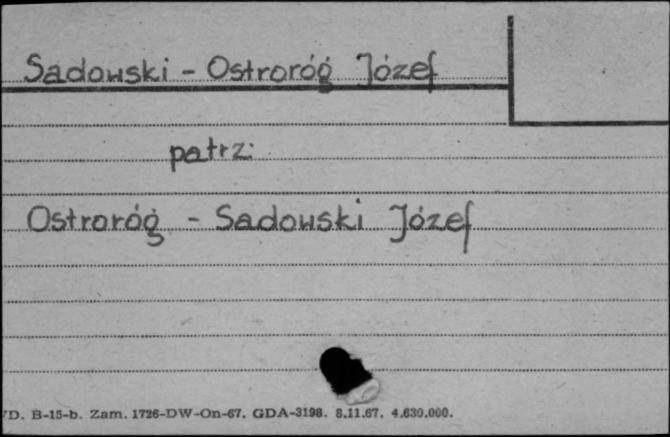 Sadowski - Ostroróg Józef
patrz:
Ostroróg - Sadowski Józef
D. B-15-b. Zam. 1726-DW-On-67. GDA-3198. 8.11.67. 4.630.000.